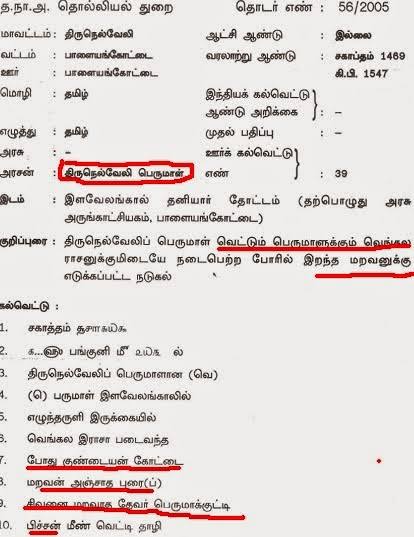 த.நா.அ. தொல்லியல் துறை தொடர் எண் : 56/2005
மாவட்டம் : திருநெல்வேலி ஆட்சி ஆண்டு : இல்லை
வட்டம் : பாளையங்கோட்டை வரலாற்று ஆண்டு : சகாப்தம் 1469
ஊர் : பாளையங்கோட்டை கி.பி. 1547
மொழி : தமிழ் இந்தியக் கல்வெட்டு
ஆண்டு அறிக்கை : –
எழுத்து : தமிழ் முதல் பதிப்பு : –
அரசு : – ஊர்க் கல்வெட்டு
அரசன் : திருநெல்வேலி பெருமாள் எண் : 39
இடம் : இளவேலங்கால் தனியார் தோட்டம் (தற்பொழுது அரசு
அருங்காட்சியகம், பாளையங்கோட்டை)
குறிப்புரை : திருநெல்வேலிப் பெருமாள் வெட்டும் பெருமாளுக்கும் வெங்கல
ராசனுக்குமிடையே நடைபெற்ற போரில் இறந்த மறவனுக்கு
எடுக்கப்பட்ட நடுகல்
கல்வெட்டு :
1. சகாத்தம்
2. பங்குனி மீ ௨௰௬ ல்
3. திருநெல்வேலிப் பெருமாளான (வெ)
4. (ெ) பருமாள் இளவேலங்காலில்
5. எழுந்தருளி இருக்கையில்
6. வெங்கல இராசா படைவந்த
7. போது குண்டையன் கோட்டை
8. மறவன் அஞ்சாத புரை(ப்)
9. சிவனை மறவாத தேவர் பெருமாக்குட்டி
10. பிச்சன் மீண் வெட்டி தாழி